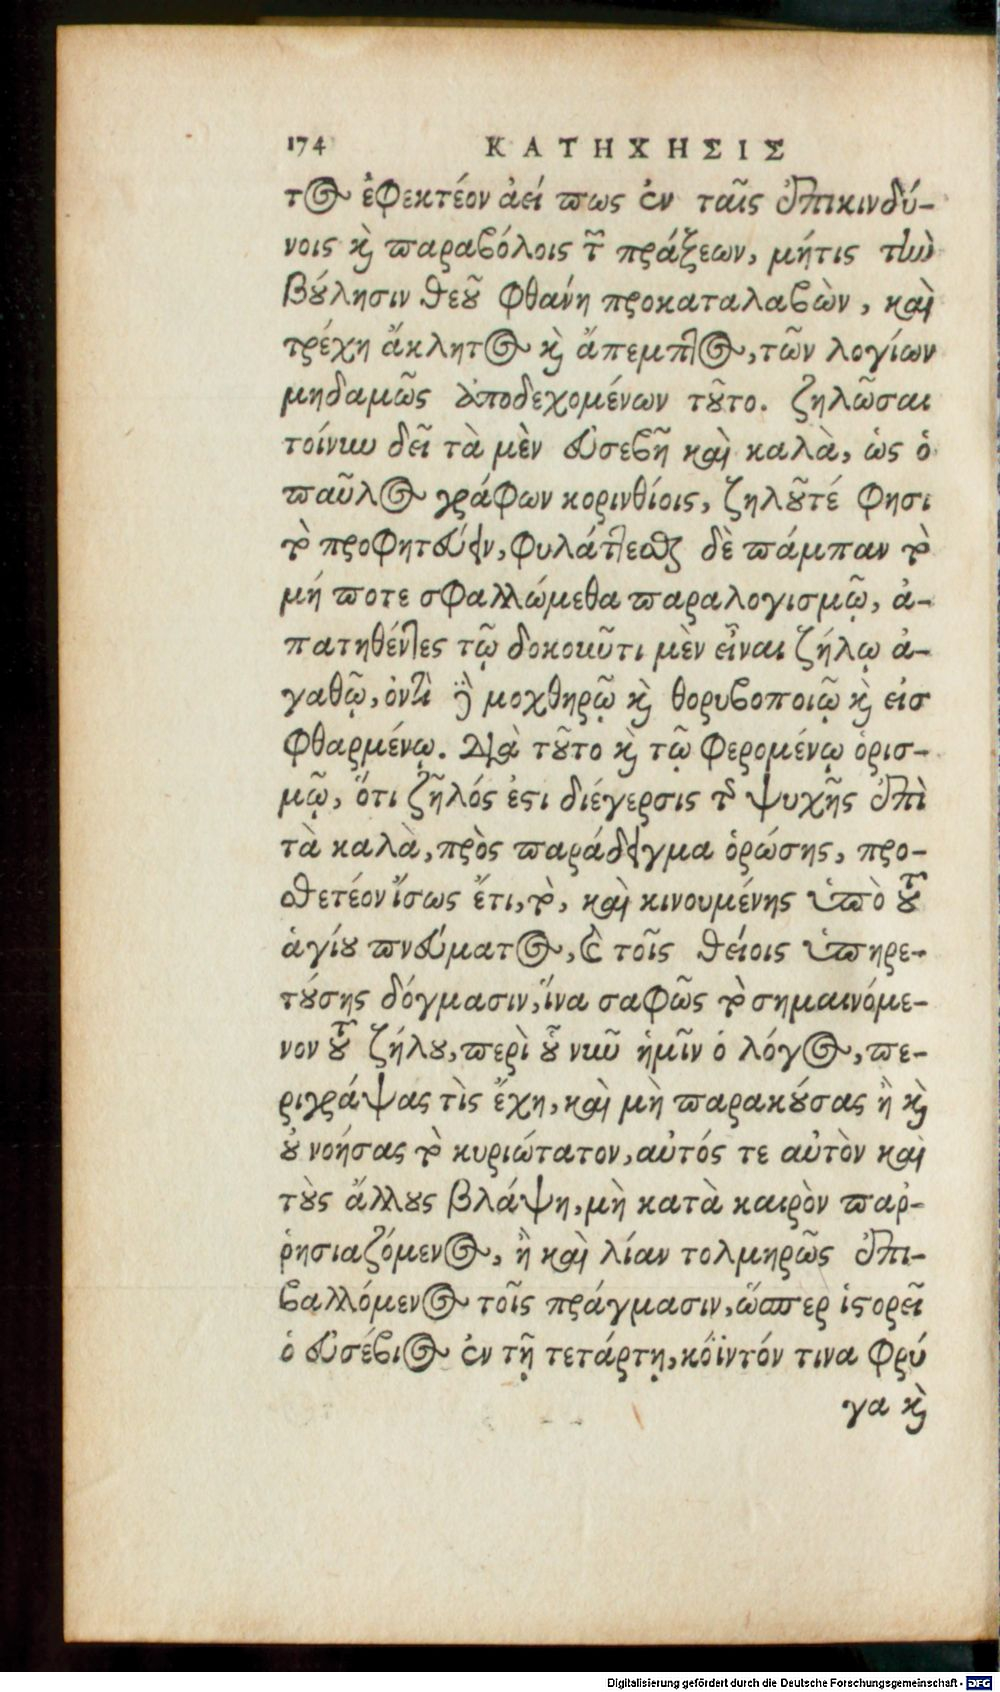 174 ΚΑΤΗΧΗΣΙΣ
τος ἐφεκτέον ἀεί πως ἐν ταῖς ἐπικινδύ-
νοις καὶ παραβόλοις τῶν πράξεων, μήτις τὴν
βούλησιν θεοῦ φθάνῃ προκαταλαβὼν, καὶ
τρέχῃ ἄκλητος καὶ ἄπεμπτος, τῶν λογίων
μηδαμῶς ἀποδεχομένων τοῦτο. ζηλῶσαι
τοίνυν δεῖ τὰ μὲν εὐσεβῆ καὶ καλὰ, ὡς ὁ
παῦλος γράφων κορινθίοις, ζηλοῦτέ φησι
τὸ προφητεύειν, φυλάττεσθαι δὲ πάμπαν τὸ
μή ποτε σφαλλώμεθα παραλογισμῷ, ἀ-
πατηθέντες τῷ δοκοῦντι μὲν εἶναι ζήλῳ ἀ-
γαθῷ, ὄντι δὲ μοχθηρῷ καὶ θορυβοποιῷ καὶ εἰσ
φθαρμένῳ. διὰ τοῦτο καὶ τῷ φερομένῳ ὁρισ-
μῷ, ὅτι ζῆλός ἐστι διέγερσις τῆς ψυχῆς ἐπὶ
τὰ καλὰ, πρὸς παράδειγμα ὁρώσης, προ-
σθετέον ἴσως ἔτι, τὸ, καὶ κινουμένης ὑπὸ τοῦ
ἁγίου πνεύματος, καὶ τοῖς θείοις ὑπηρε-
τούσης δόγμασιν, ἵνα σαφῶς τὸ σημαινόμε-
νον τοῦ ζήλου, περὶ οὗ νῦν ἡμῖν ὁ λόγος, πε-
ριγράψας τὶς ἔχῃ, καὶ μὴ παρακούσας ἢ καὶ
οὐ νοήσας τὸ κυριώτατον, αὐτός τε αὑτὸν καὶ
τοὺς ἄλλους βλάψῃ, μὴ κατὰ καιρὸν παῤ-
ῥησιαζόμενος, ἢ καὶ λίαν τολμηρῶς ἐπι-
βαλλόμενος τοῖς πράγμασιν, ὥσπερ ἱστορεῖ
ὁ εὐσέβιος ἐν τῇ τετάρτῃ, κόϊντόν τινα φρύ
γα καὶ
Digitalisierung gefördert durch die Deutsche Forschungsgemeinschaft - DFG